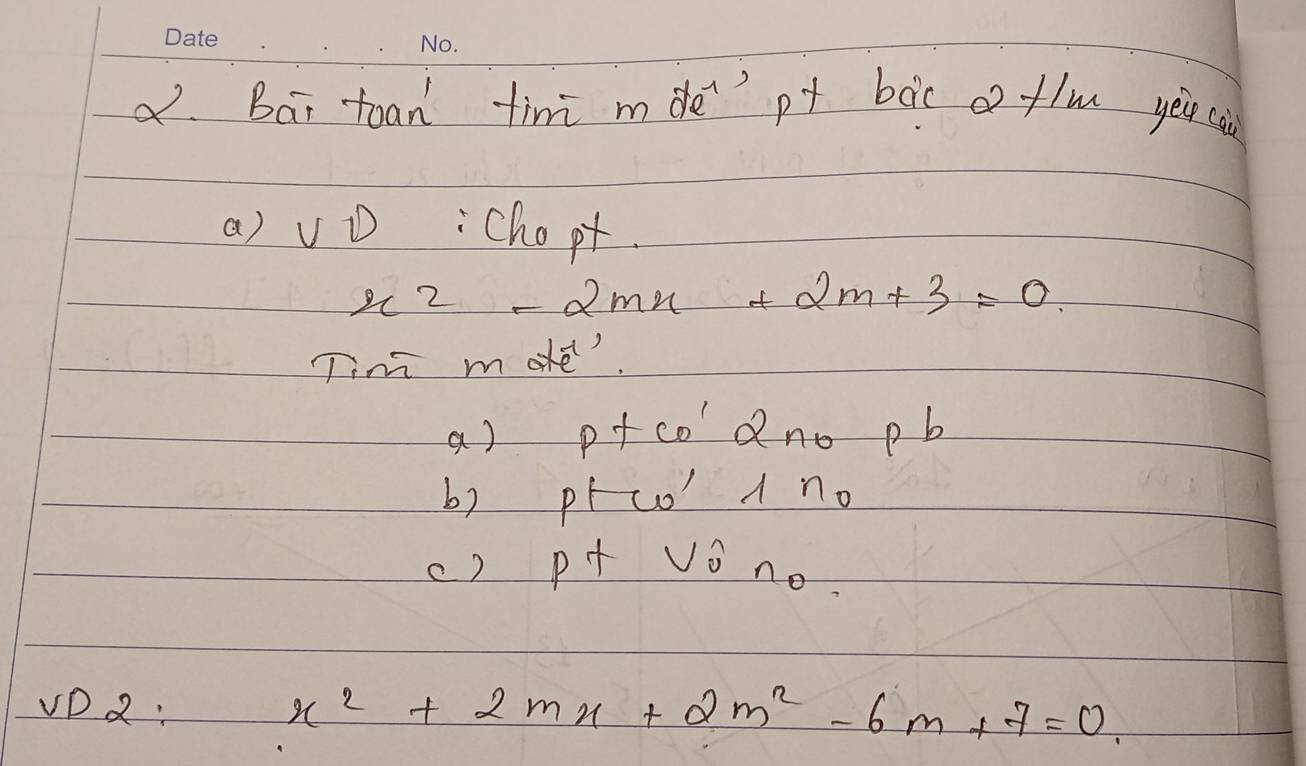 Date . . . No.
2. Bài toán tìm m để pt bậc 2 t/m yêu cầu
a) VD : Cho pt.
x² - 2mx + 2m + 3 = 0.
Tìm m để.
a) pt có 2 no pb
b) pt có 1 no
c) pt vô no.
VD 2: x² + 2mx + 2m² - 6m + 7 = 0.